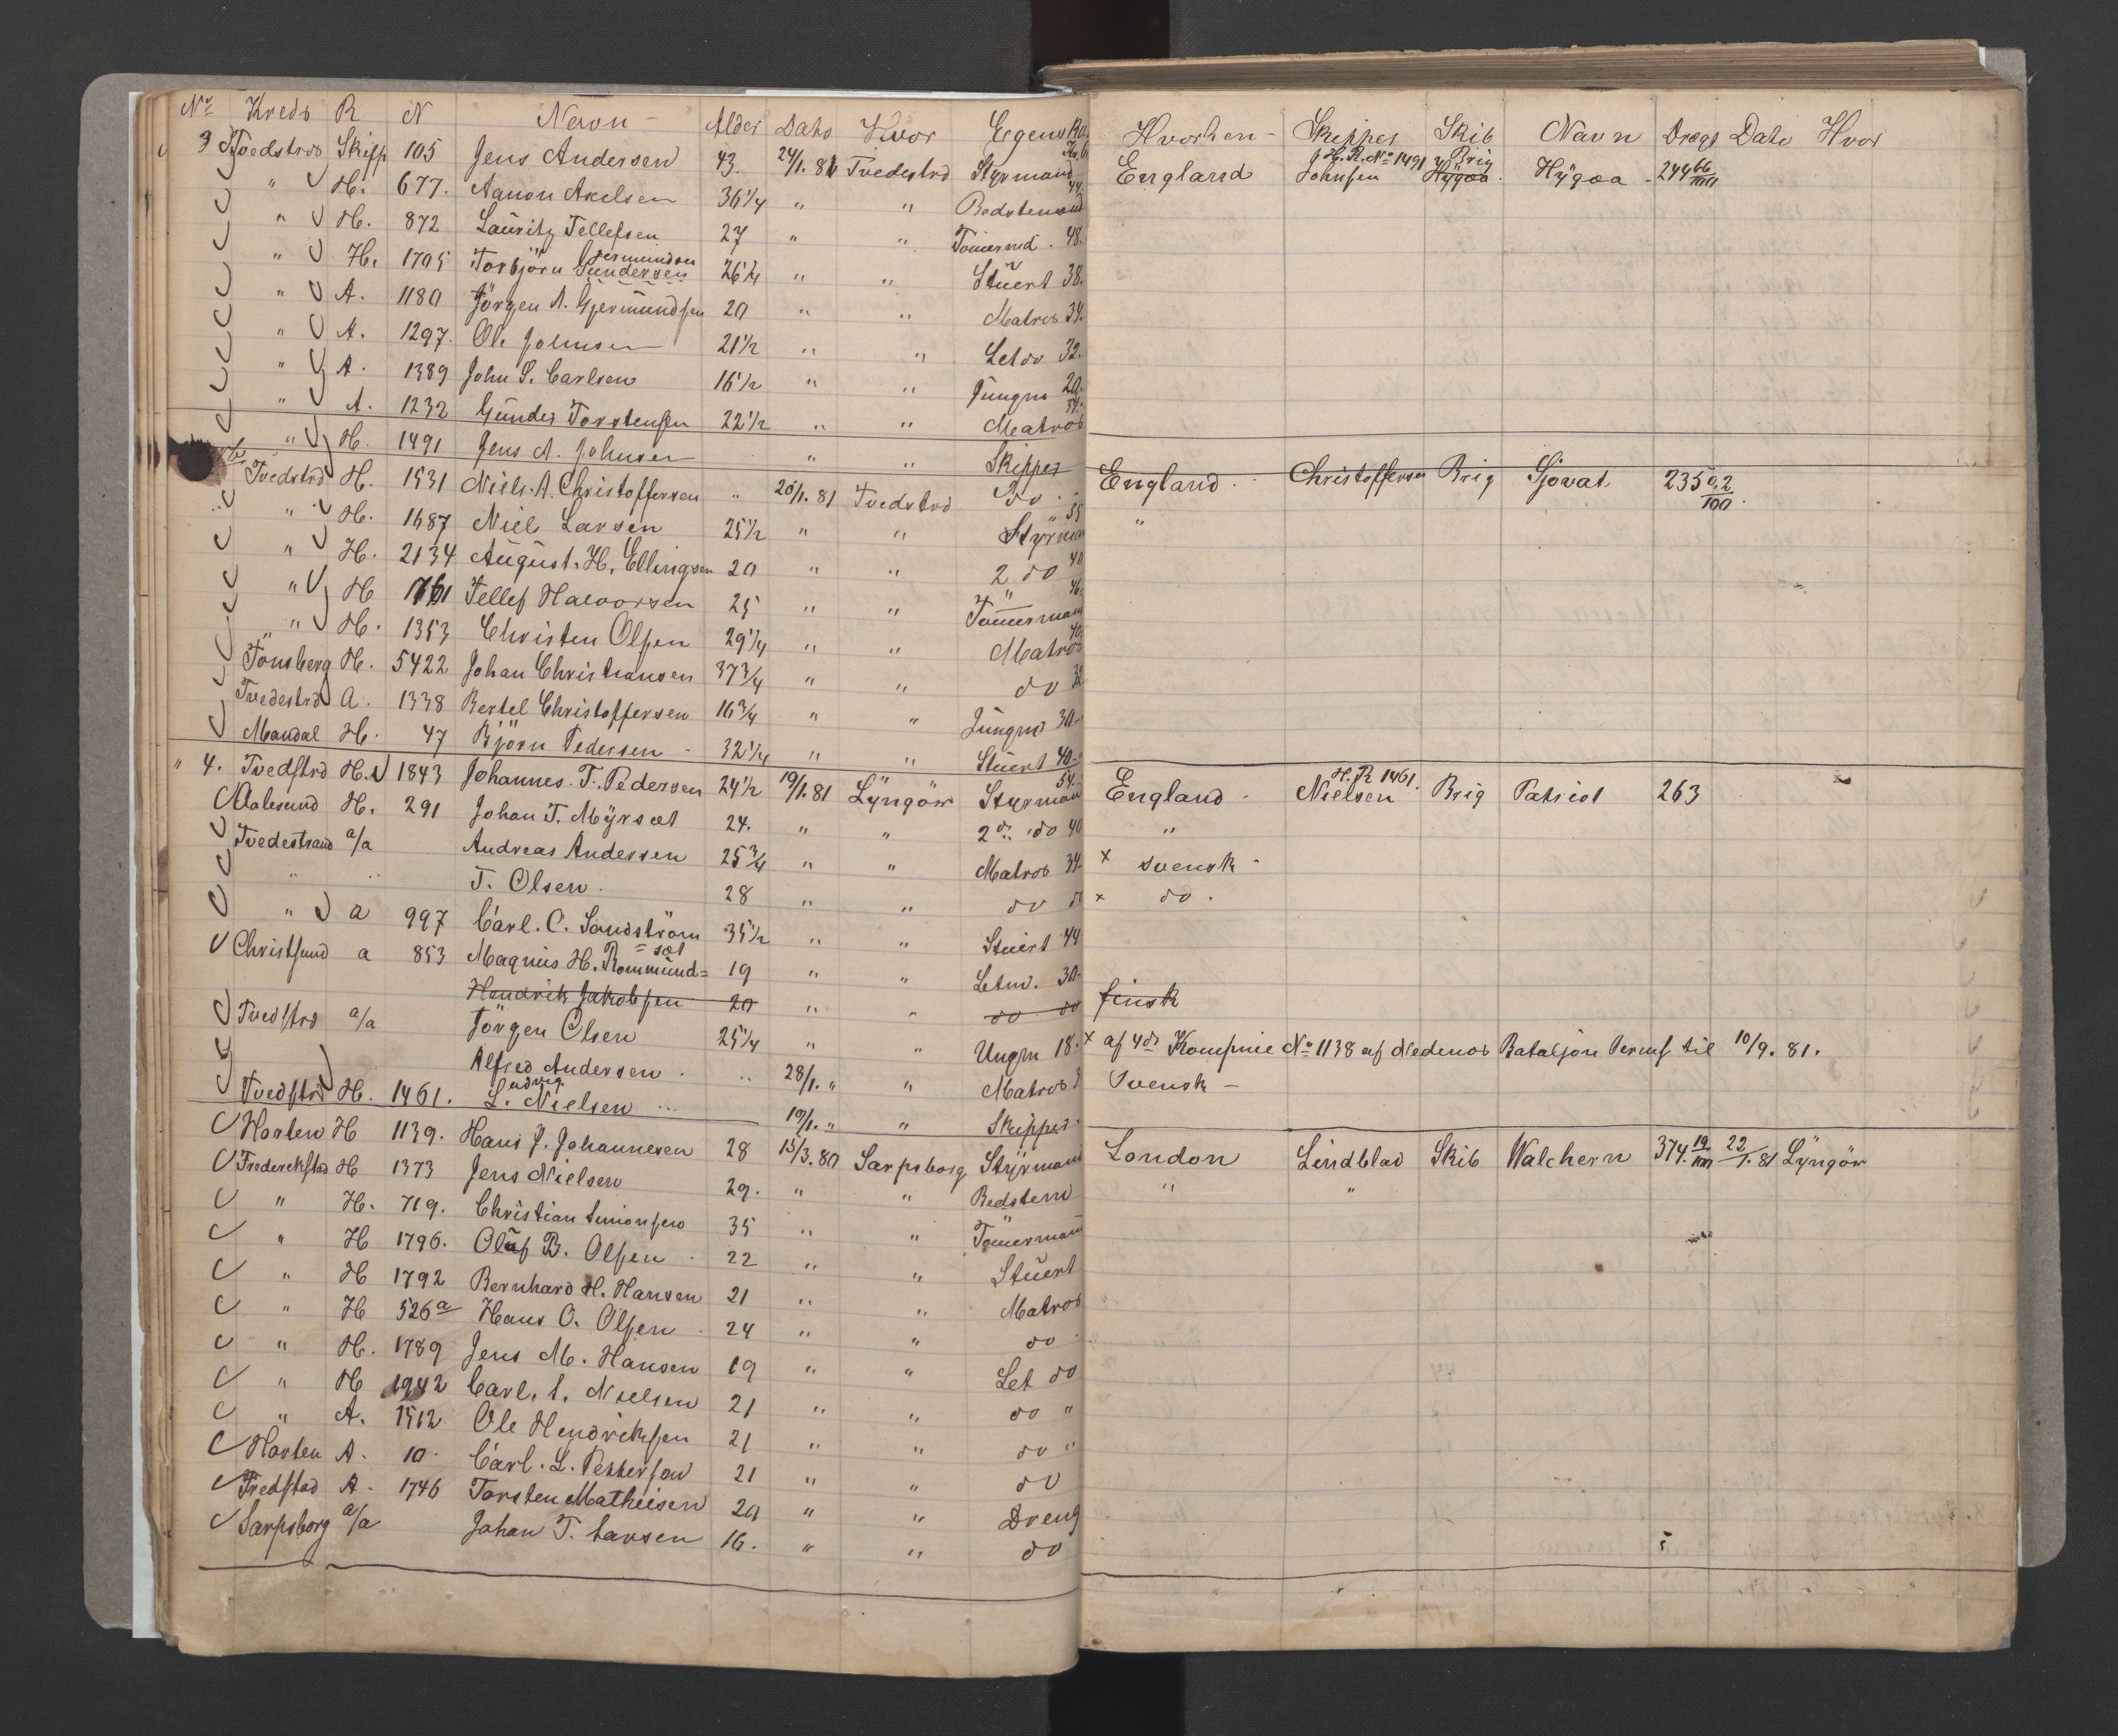 Nr Kreds R N Navn Alder Dato Hvor Egensk. Hvorhen Skipper Skib Navn Drægt Dato Hvor
3 Tvedstrd Skipp 105 Jens Andersen 43. 24/1. 81 Tvedestrd Styrmand England Johnsen H. R. No 1491 Brig Hÿgæa 244 66/100
" H. 677. Aanon Axelsen 36 1/4 " " Bedstemand 44.
" H. 872 Lauritz Tellefsen 27 " " Tömmermd. 48.
" H. 1705 Torbjörn Gundersen 26 1/4 " " Stuert 38.
" A. 1180 Jörgen A. Gjermundsen 20 " " Matros 34.
" A. 1297. Ole Johnsen 21 1/2 " " Let do 32.
" A. 1389 John S. Carlsen 16 1/2 " " Jungm 20.
" A. 1232 Gunder Torstensen 22 1/2 " " Matros 34.
" H. 1491 Jens A. Johnsen " " Skipper
Tvedstrd H. 1531 Niels A. Christoffersen " 25/1. 81 Tvedstrd Do England Christoffersen Brig Sjövat 235 02/100
" H. 1687 Niels Larsen 25 1/2 " " Styrman 55 "
" H. 2134 August. H. Ellingsen 20 " " 2 do 40
" H 1761 Tellef Halvorsen 25 " " Tömmerman 46.
" H. 1353 Christen Olsen 29 1/4 " " Matros 40
Tönsberg H. 5422 Johan Christiansen 37 3/4 " " do
Tvedestrd A. 1338 Bertel Christoffersen 16 3/4 " " Jungm 30
Mandal H. 47 Björn Pedersen 32 1/4 " " Stuert 40
" 4. Tvedstrd H. 1843 Johannes. T. Pedersen 24 1/2 19/1. 81 Lÿngör Styrmand 54. England Nielsen H. R 1461. Brig Patriot 263
Aalesund H. 291 Johan T. Mÿrsæt 24. " " 2 do 40 "
Tvedestrand a/a Andreas Andersen 25 3/4 " " Matros 34 x svensk
" " T. Olsen. 28 " " do do x do.
" a 997 Carl. C. Sandström 35 1/2 " " Stuert 44
Christsund a 853 Magnus H. Rommund=sæt 19 " " Letm. 30
Hendrik Jakobsen 20 " " do do finsk
Tvedstrd a/a Jörgen Olsen 25 1/4 " " Ungm 18. x af 4de Kompnie No 1138 af Nedenes Bataljon Permis til 10/9. 81.
Alfred Andersen. " 28/1. " " Matros Svensk
Tvedstrd H. 1461. Ludvig Nielsen 19/1. " " Skipper
Horten H 1139. Hans J. Johannesen 28 15/3. 80 Sarpsborg Stÿrmand London Lindblad Skib Walchern 374. 19/100 22/1. 81 Lÿngör
Frederikstad H 1373 Jens Nielsen 29. " " Bedstem " "
" H. 719. Christian Simonsen 35 " " Tömmerman
" H 1796. Oluf B. Olsen. 22 " " Stuert
" H 1792 Bernhard H. Hansen 21 " " Matros
" H 526 a Hans O. Olsen. 24 " " do
" H. 1789 Jens M. Hansen 19 " " Let do
" H 1942 Carl. A. Nielsen 21 " " do "
" A. 1512 Ole Hendriksen 21 " " do "
Horten A. 10. Carl. L. Pettersen 21 " " do
Fredstad A. 1746 Torsten Mathiesen 20 " " Dreng
Sarpsborg a/a Johan T. Larsen 16. " " do